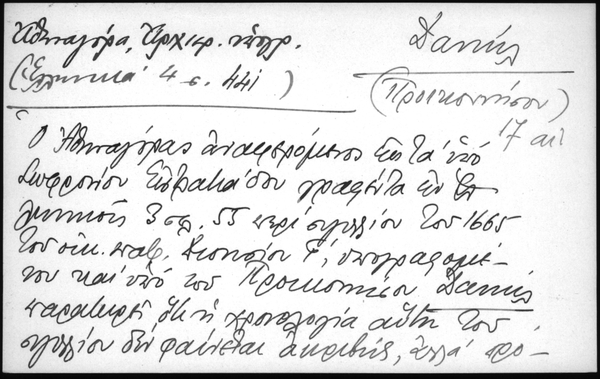 Ἀθηναγόρα, Ἀρχιερ.
Δανιήλ
(Ἑλληνικά 4 σ. 441)
(Προικοννήσου)
17 αἰ
Ὁ Ἀθηναγόρας ἀναφερόμενος εἰς τά ὑπό
Σωφρονίου Εὐστρατιάδου γραφέντα ἐν Ἑλ-
ληνικοῖς 3 σελ. 55 περί σιγιλλίου τοῦ 1665
τοῦ οἰκ. πατρ. Διονυσίου Γ΄, ὑπογραφομέ-
νου καί ὑπό τοῦ Προικοννήσου Δανιήλ
παρατηρεῖ ὅτι ἡ χρονολογία αὕτη τοῦ
σιγιλλίου δέν φαίνεται ἀκριβής, ἀλλά προ-